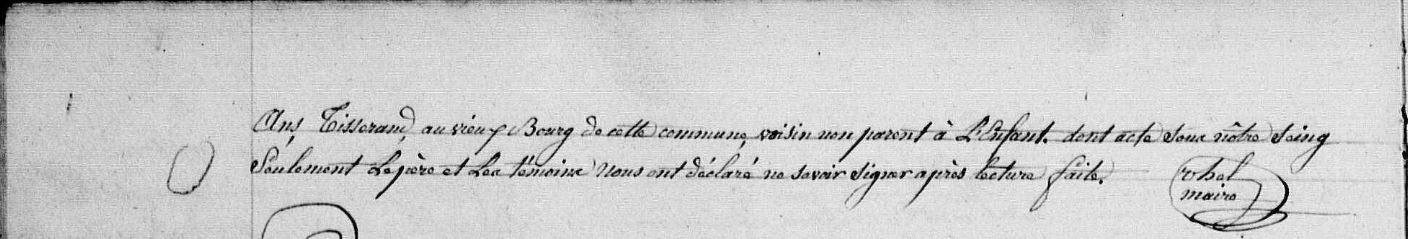 Ans Tisserand, au vieux Bourg de cette commune, voisin non parent à L'Enfant. dont acte sous nôtre seing
Seulement Le père et Les témoins Nous ont déclaré ne savoir signer après lecture faite.
maire